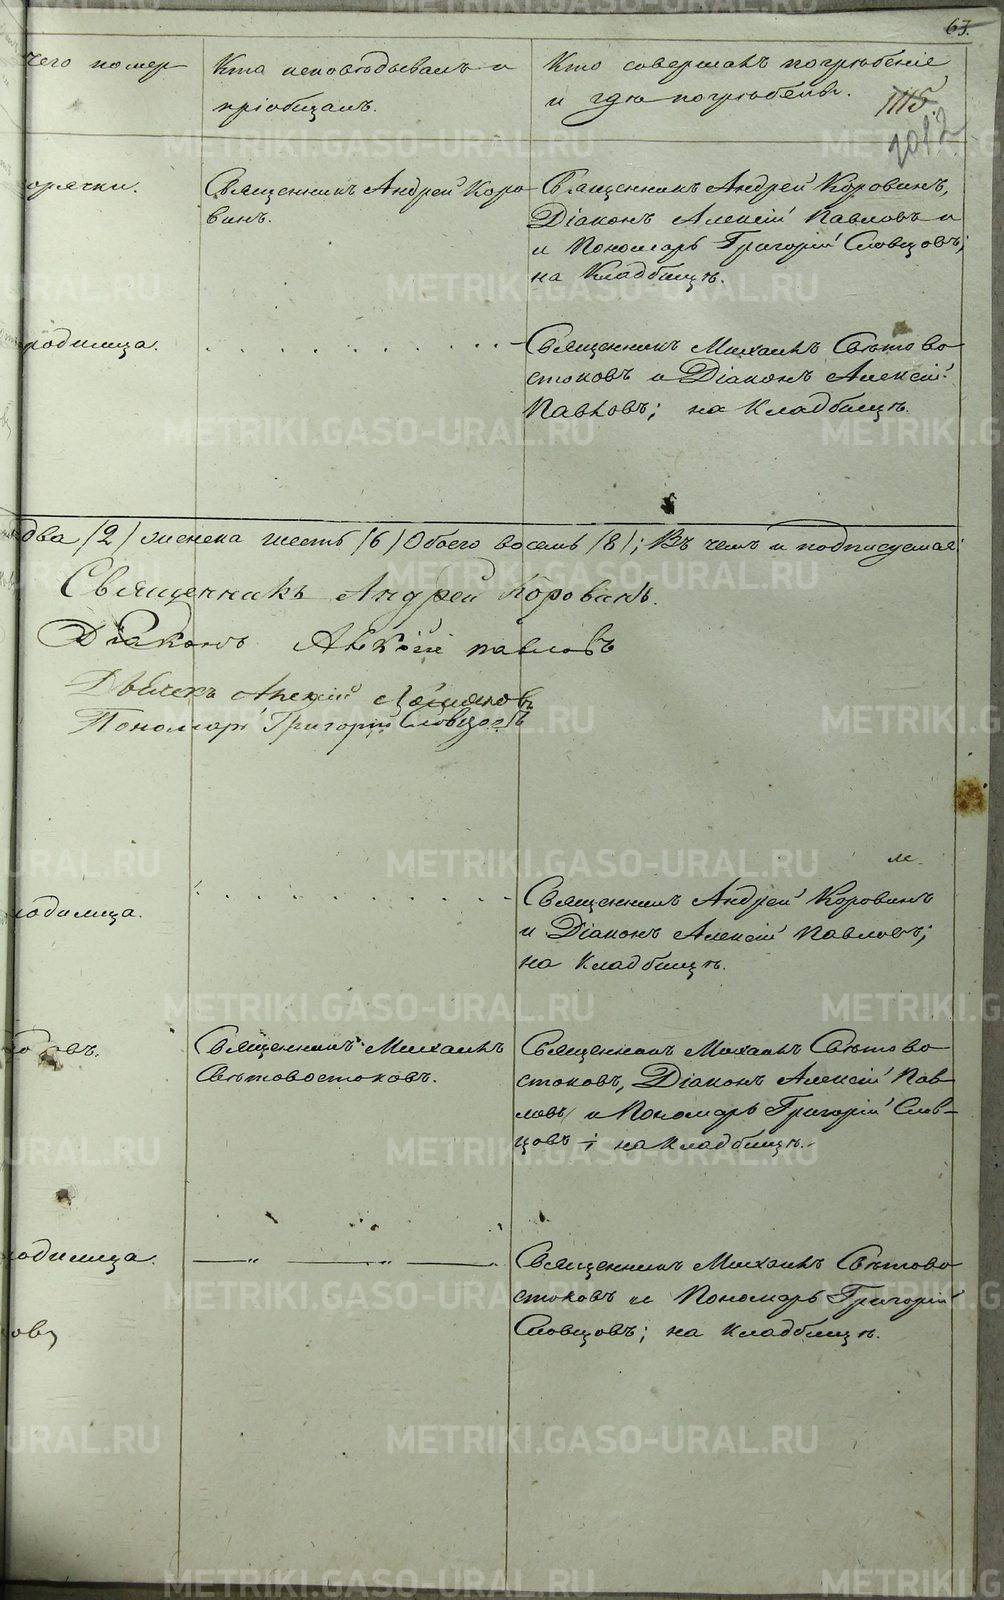 63.
чего померъ
Кто исповѣдывалъ и
пріобщалъ.
Кто совершалъ погребеніе
и гдѣ погребены.
1115.
2012
орячки.
Священникъ Андрей Коро
винъ.
Священникъ Андрей Коровинъ,
Діаконъ Алексій Павловъ и
и Пономарь Григорій Словцовъ;
на Кладбищѣ.
родимца.
Священникъ Михаилъ Свѣтово
стоковъ и Діаконъ Алексій
Павловъ; на Кладбищѣ.
два /2/ женска шесть /6/ Обоего восемь /8/; Въ чемъ и подписуемся:
Священникъ Андрей Коровинъ.
Діаконъ Алексій Павловъ
Дьячекъ Алексій
Пономарь Григорій Словцовъ
родимца.
Священникъ Андрей Коровинъ
и Діаконъ Алексій Павловъ;
на Кладбищѣ.
Священникъ Михаилъ
Свѣтовостоковъ.
Священникъ Михаилъ Свѣтово
стоковъ, Діаконъ Алексій Пав
ловъ и Пономарь Григорій Слов-
цовъ; на Кладбищѣ.
родимца.
Священникъ Михаилъ Свѣтово
стоковъ и Пономарь Григорій
Словцовъ; на Кладбищѣ.
METRIKI.GASO-URAL.RU